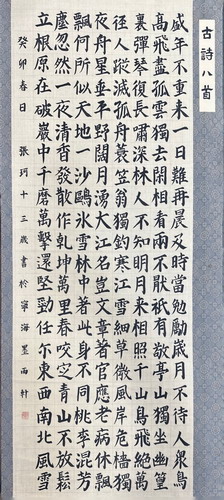 古詩八首
盛年不重來一日難再晨及時當勉勵歲月不待人衆鳥
高飛盡孤雲獨去閑相看兩不厭衹有敬亭山獨坐幽篁
裏彈琴復長嘯深林人不知明月來相照千山鳥飛絶萬
徑人蹤滅孤舟蓑笠翁獨釣寒江雪細草微風岸危檣獨
夜舟星垂平野闊月湧大江名豈文章著官應老病休飄
飄何所似天地一沙鷗冰雪林中著此身不同桃李混芳
塵忽然一夜清香發散作乾坤萬里春咬定青山不放鬆
立根原在破巖中千磨萬擊還堅勁任尔東西南北風雪
癸卯春日 張珂十三歲書於寧海墨雨軒